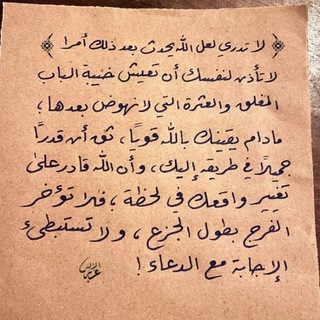 ﴿ لا تدري لعل الله يحدث بعد ذلك أمرا ﴾
لا تأذن لنفسك أن تعيش خيبة الباب
المغلق والعثرة التي لا نهوض بعدها؛
مادام يقينك بالله قويًا، ثق أن قدرًا
جميلًا في طريقه إليك، وأن الله قادر على
تغيير واقعك في لحظة، فلا تؤخر
الفرج بطول الجزع، ولا تستبطىء
الإجابة مع الدعاء!